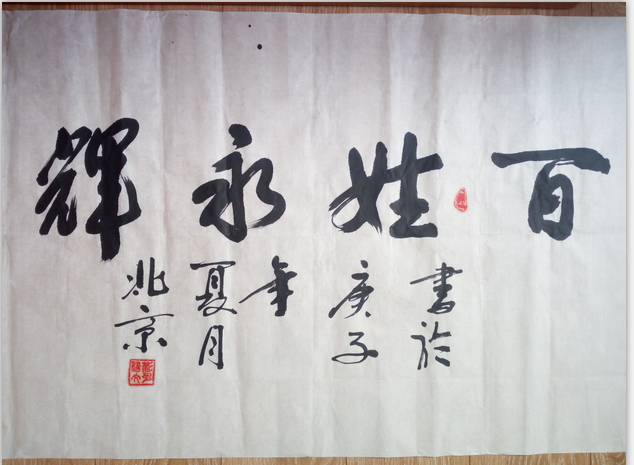 百姓永輝
書於
庚子
年
夏月
兆京